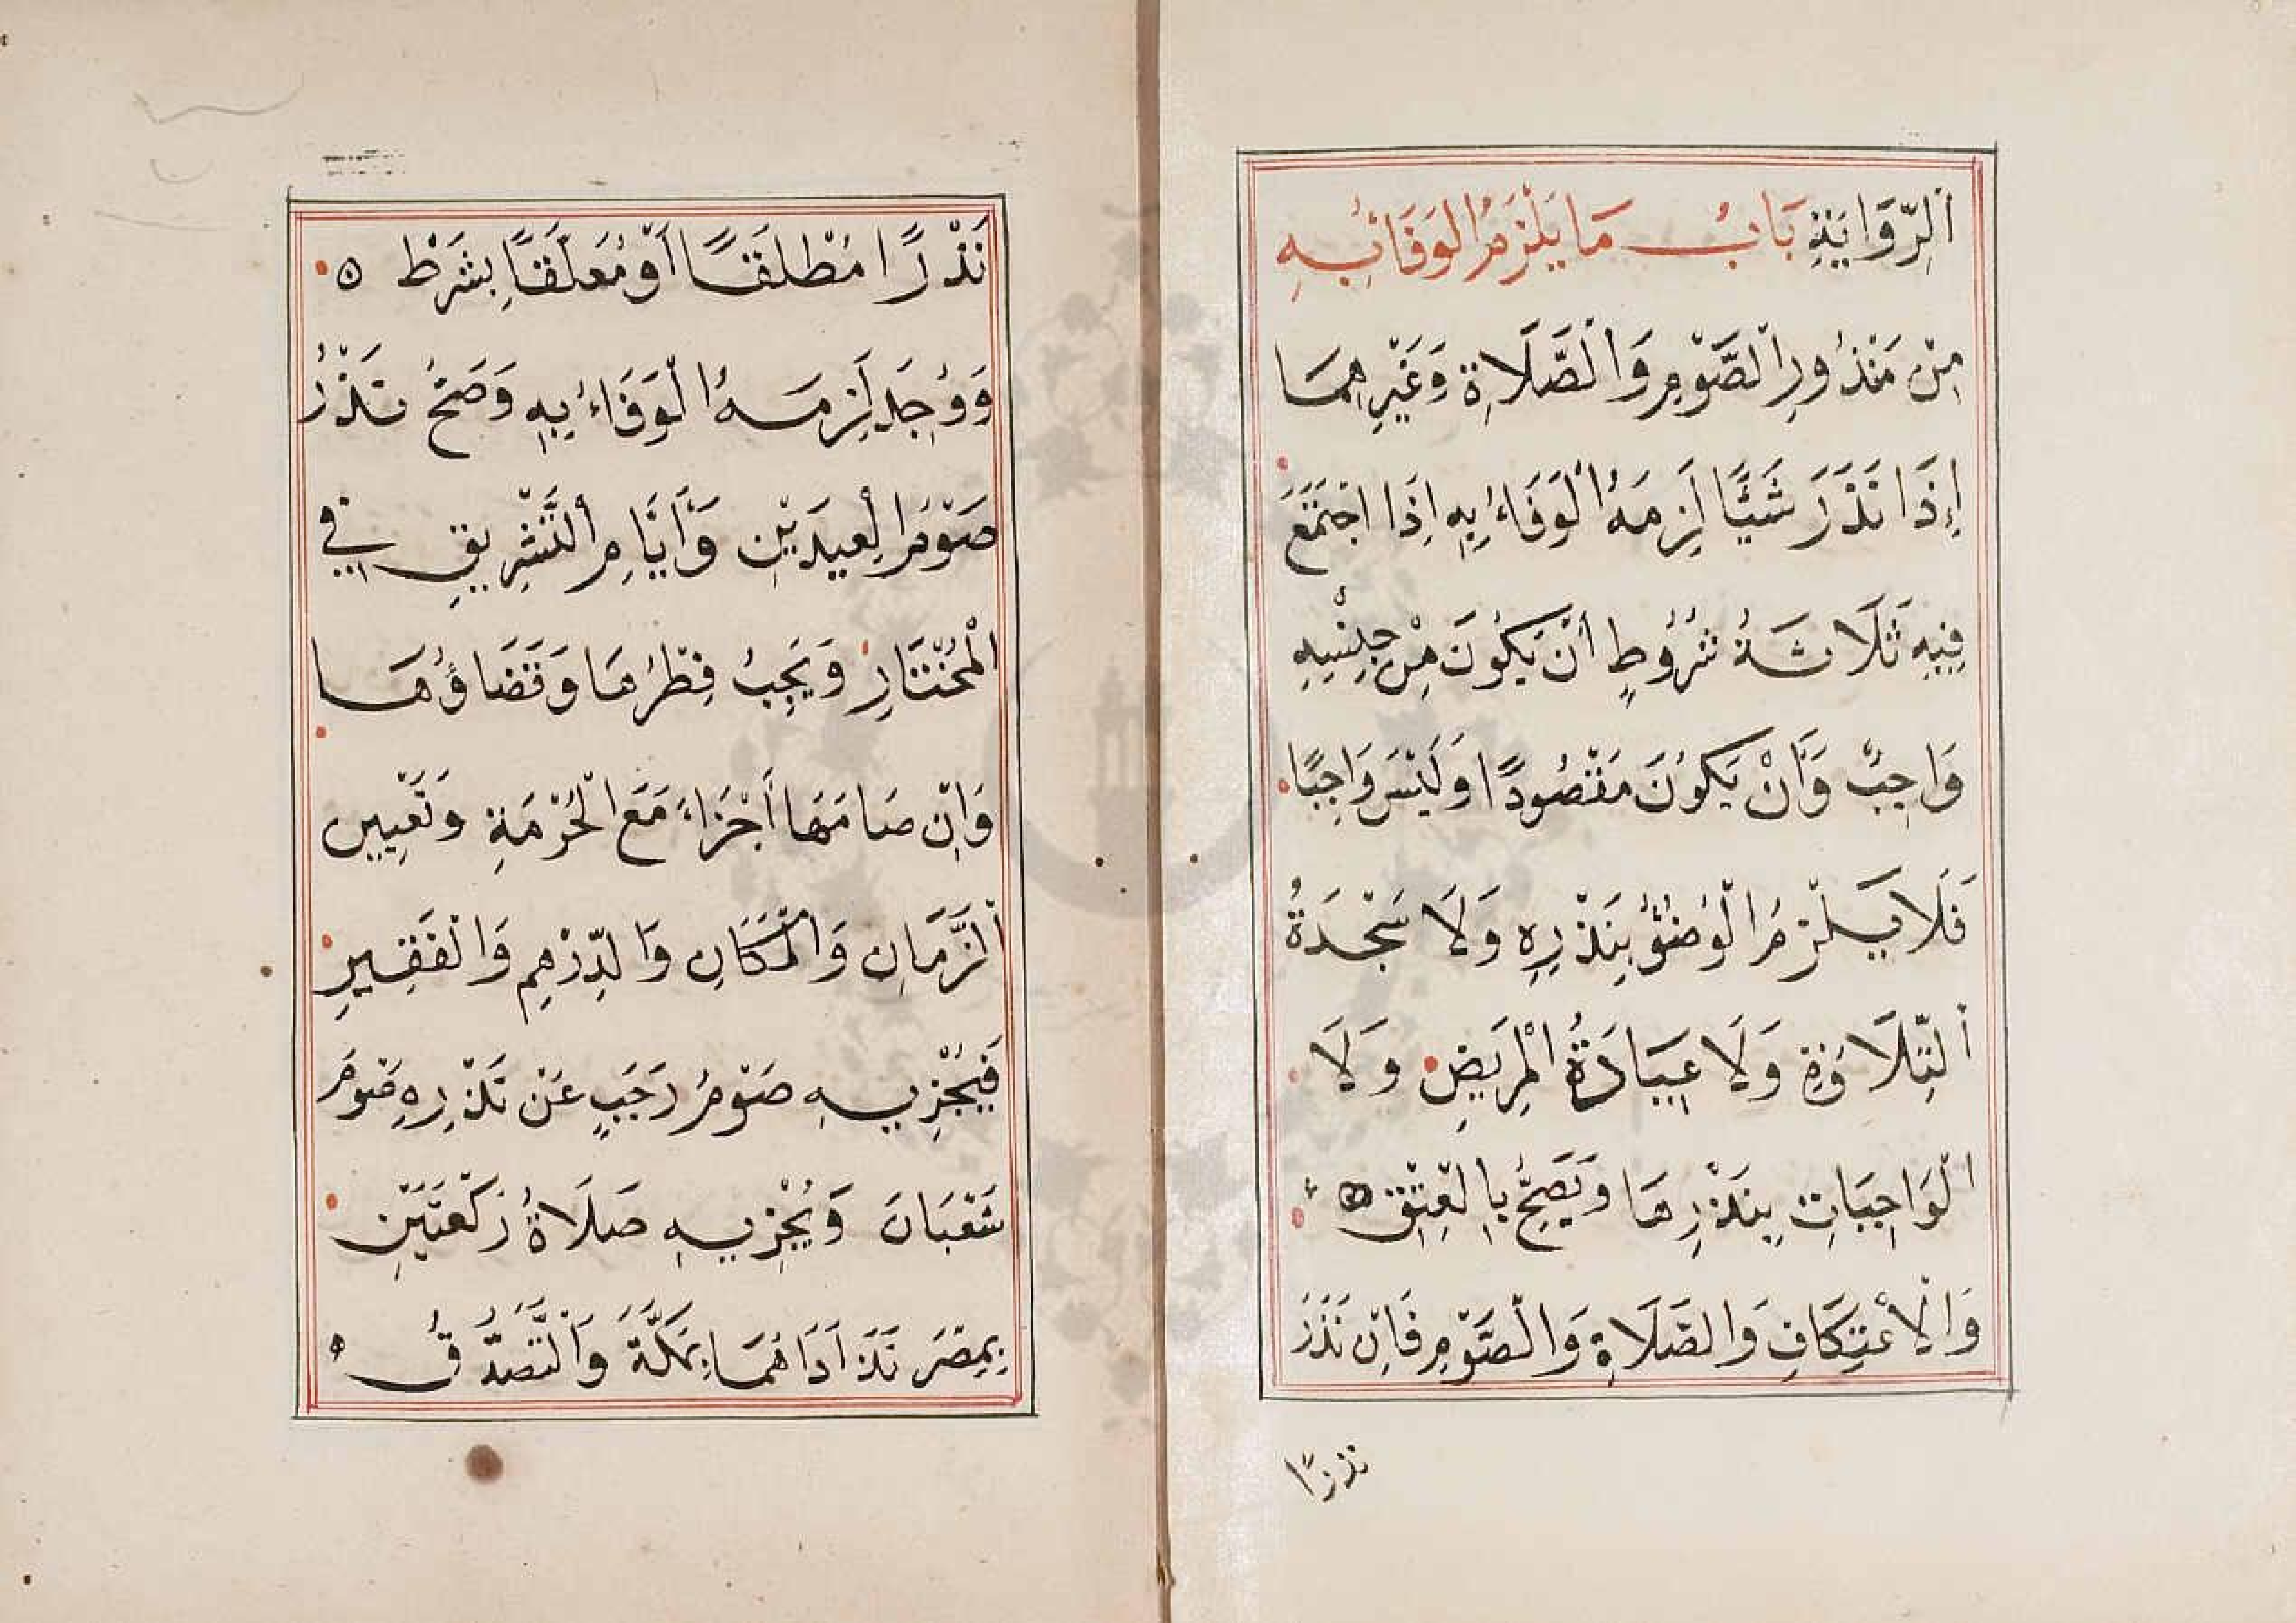 اَلرِّوَايَةِ بَابُ مَا يَلْزَمُ الوَفَائِبِهِ
مِنْ مَنْذُورِ الصَّوْمِ وَالْصَّلَاةِ وَغَيْرِهِمَا
إِذَا نَذَرَ شَيْئًا لَزِمَهُ الْوَفَاءُ بِهِ اِذَا اجْتَمَعَ
فِيْهِ ثَلَاثَةُ شُرُوطٍ أَنْ يَكُونَ مِنْ جِنْسِهِ
وَاجِبٌ وَأَنْ يَكُونَ مَقْصُودًا وَلَيْسَ وَاجِبًا
فَلَا يَلْزَمُ الْوُضُؤُ بِنَذْرِهِ وَلَا سَجْدَةُ
اَلتِّلَاوَةِ وَلَا عِيَادَةُ الْمَرِيَضِ وَلَا
الْوَاجِبَاتِ بِنَذْرِهَا وَيَصَحُّ بِالْعِتْقِ
وَالْاِعْتِكَافِ وَالصَّلَاةِ وَالْصَّوْمِ فَاِنْ نَذَرَ
نذرًا
نَذْرًا مُطْلَقًا أَوْ مُعَلَّقًا بِشَرْطٍ
وَوُجِدَ لَزِمَهُ الْوَفَاءُ بِهِ وَصَحُّ نَذْرُ
صَوْمُ الْعِيدَيْنِ وَأَيَّامِ اَلتَّشْرِيقِ فِي
الْمُخْتَارِ وَيَجِبُ فِطْرُهَا وَقَضَاؤُهَا
وَاِنْ صَامَهَا أَجْزَاءَ مَعَ الْحُرْمَةِ وَتَعْيِينِ
اَلزَّمَانِ وَالْمَكَانِ وَالدِّرْهِمِ وَالْفَقِيرِ
فَيُجْزِيهِ صَوْمُ رَجَبٍ عَنْ نَذْرِهِ صَوْمَ
شَعْبَانَ وَيُجْزِيهِ صَلَاةُ رَكْعَتَيْنِ
بِمِصْرَ نَذَرَ اَدَاهُمَا بِمَكَّةَ وَالْتَّصَدُّقُ